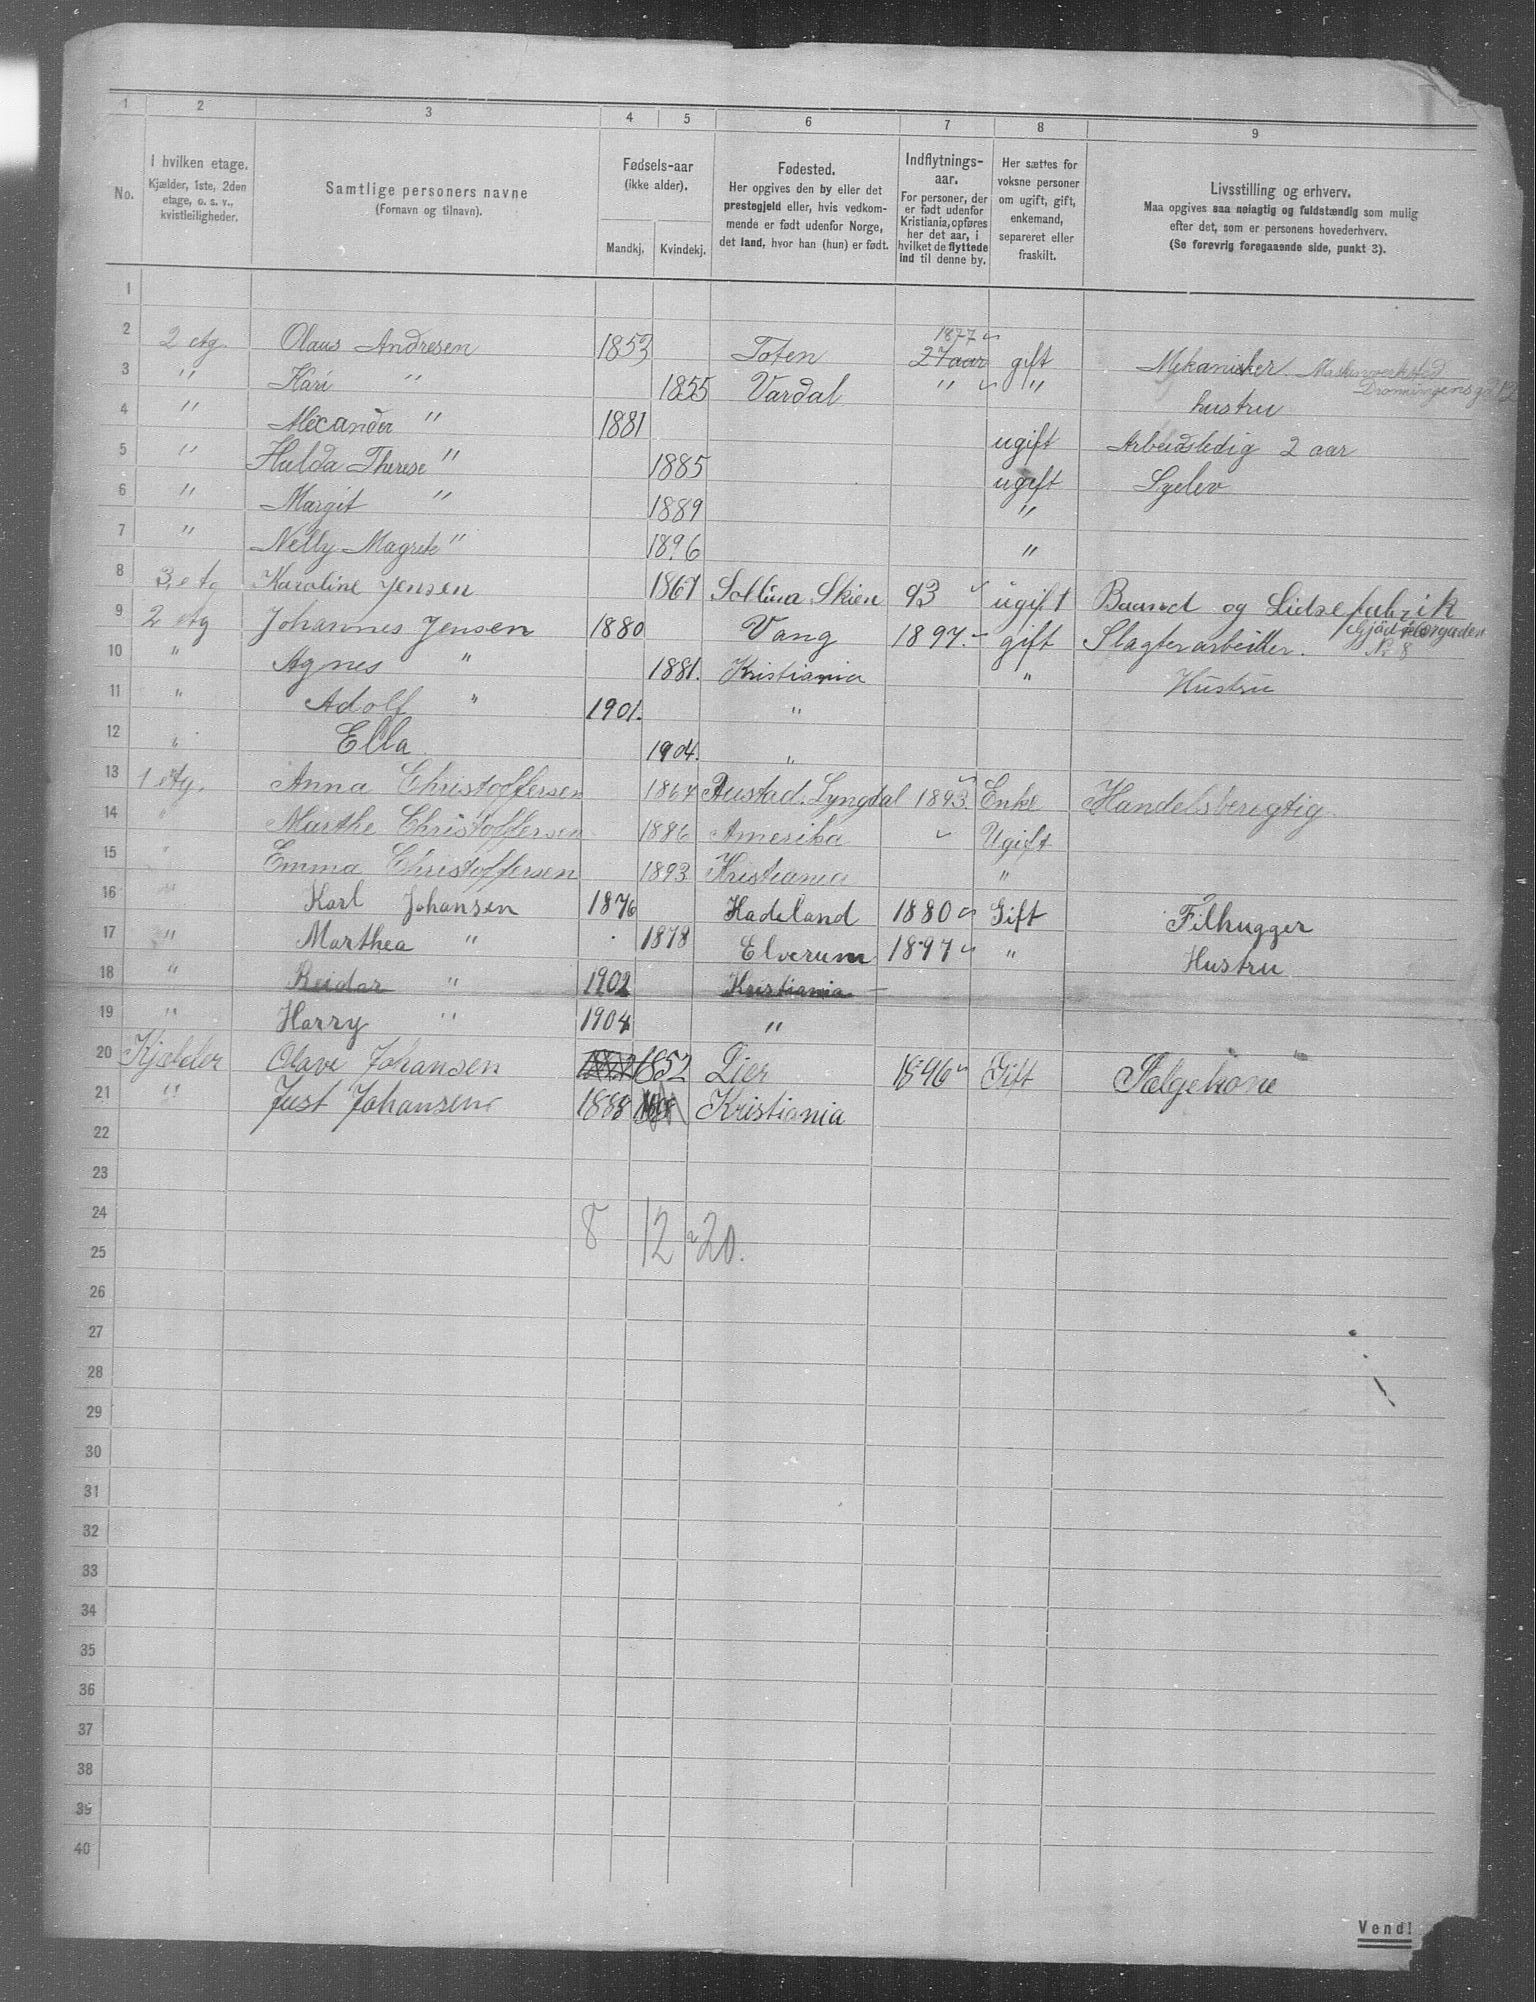 1 2 3 4 5 6 7 8 9
No. I hvilken etage. Kjælder, 1ste, 2den etage, o. s. v., kvistleiligheder.
Samtlige personers navne (Fornavn og tilnavn).
Fødsels-aar (ikke alder). Mandkj. Kvindekj.
Fødested. Her opgives den by eller det prestegjeld eller, hvis vedkommende er født udenfor Norge, det land, hvor han (hun) er født.
Indflytnings-aar. For personer, der er født udenfor Kristiania, opføres her det aar, i hvilket de flyttede ind til denne by.
Her sættes for voksne personer om ugift, gift, enkemand, separeret eller fraskilt.
Livsstilling og erhverv. Maa opgives saa nøiagtig og fuldstændig som mulig efter det, som er personens hovederhverv. (Se forevrig foregaaende side, punkt 3).
1
2 2 etg. Olaus Andresen 1853 Toten 1877 27 aar gift Mekaniker Maskinverksted Dronningensgd 12
3 " Kari " 1855 Vardal " " hustru
4 " Alexander " 1881 ugift Arbeidsledig 2 aar
5 " Hulda Therese " 1885 ugift Syelev
6 " Margit " 1889 "
7 " Nelly Magrete " 1896 "
8 3 etg Karoline Jensen 1867 Sollina Skien 93 ugift Baand og Lidsefabrik
9 2 etg Johannes Jensen 1880 Vang 1897 gift Slagterarbeider. No 8
10 " Agnes " 1881. Kristiania " Hustru
11 " Adolf " 1901. "
12 " Ella 1904. "
13 1 etg. Anna Christoffersen 1864 Austad. Lyngdal 1893. Enke Handelsberigtig
14 " Marthe Christoffersen 1886 Amerika Ugift
15 " Emma Christoffersen 1893 Kristiania "
16 " Karl Johansen 1876 Hadeland 1880 Gift Filhugger
17 " Marthea " 1878 Elverum 1897 " Hustru
18 " Reidar " 1902 Kristiania
19 " Harry " 1904 "
20 Kjælder Olave Johansen 1852 Lier 1896 Gift Sælgekone
21 " Just Johansen 1888 Kristiania
22
23
24 8 12 20.
25
26
27
28
29
30
31
32
33
34
35
36
37
38
39
40
Vend!